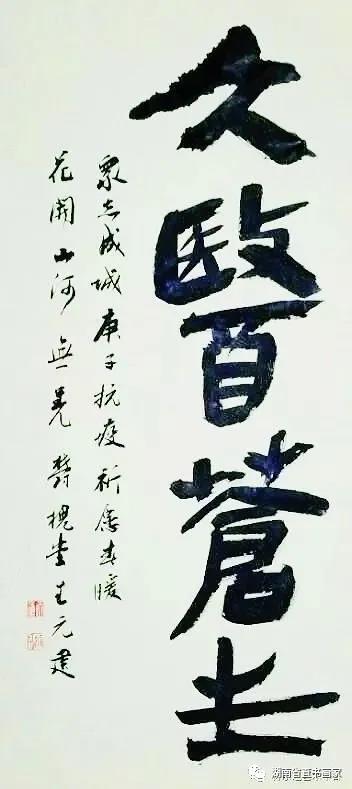 大醫蒼生
衆志成城庚子抗疫祈愿春暖
花開山河無恙槐堂王元建
湖南省直书画家